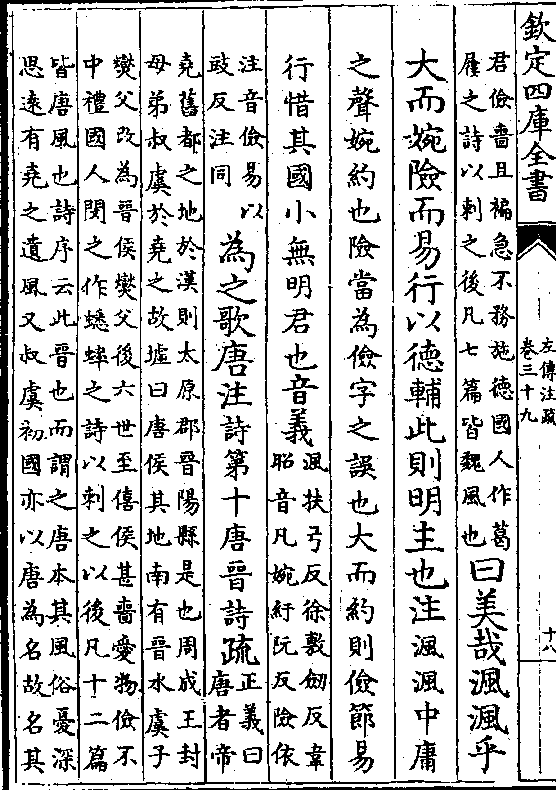 欽定四庫全書
左傳注疏
卷三十九
十八
君儉嗇且褊急不務施德國人作葛
屨之詩以刺之後凡七篇皆魏風也
曰美哉渢渢乎
大而婉險而易行以德輔此則明主也注渢渢中庸
之聲婉約也險當為儉字之誤也大而約則儉節易
行惜其國小無明君也音義
渢扶弓反徐敷劒反韋
昭音凡婉紆阮反險依
注音儉易以
豉反注同
為之歌唐注詩第十唐晉詩疏
正義曰
唐者帝
堯舊都之地於漢則太原郡晉陽縣是也周成王封
母弟叔虞於堯之故墟曰唐侯其地南有晉水虞子
燮父改為晉侯燮父後六世至僖侯甚嗇愛物儉不
中禮國人閔之作蟋蟀之詩以刺之以後凡十二篇
皆唐風也詩序云此晉也而謂之唐本其風俗憂深
思遠有堯之遺風又叔虞初國亦以唐為名故名其